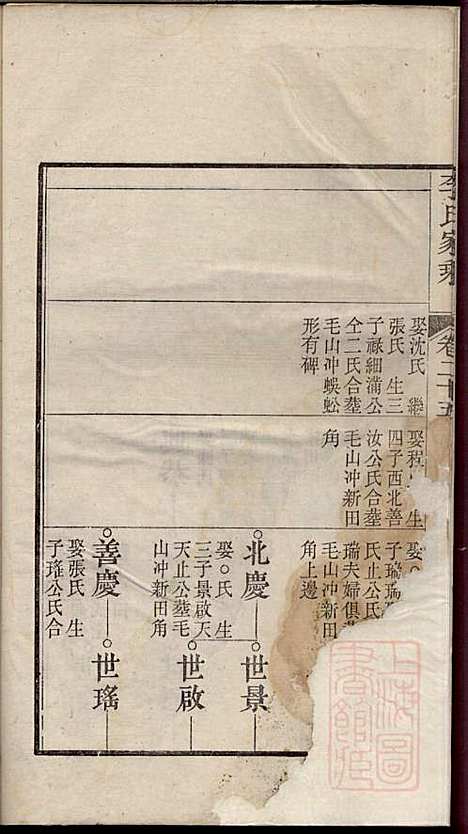 李氏家乘
卷二十五
娶沈氏 繼
張氏 生三
子祿細滿公
仝二氏合塟
毛山冲蜈蚣
形有碑
娶程 生
四子西北善
汝公氏合塟
毛山冲新田
角
娶○
子瑞瑞
氏止公氏
瑞夫婦俱
毛山冲新田
角上邊
○北慶
娶○氏 生
三子景啟天
天止公塟毛
山冲新田角
○世景
○世啟
○善慶
娶張氏 生
子瑤公氏合
○世瑤
上海圖
書館藏